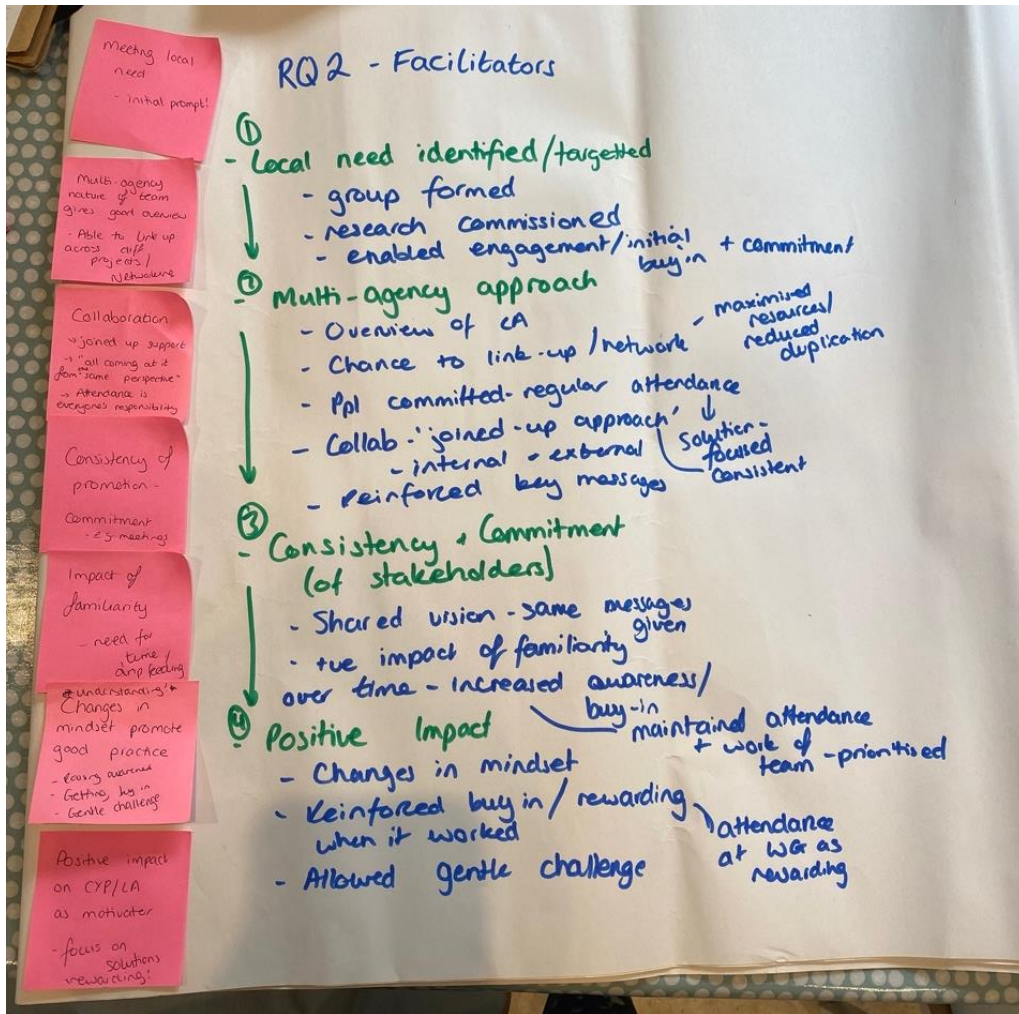 Meeting local
need
- initial prompt!
Multi-agency
nature of team
gives good overview
- Able to link up
across diff
projects/
Networking
Collaboration
→ joined up support
→ "all coming at it
from the "same perspective"
→ Attendance is
everyone's responsibility
Consistency of
promotion -
Commitment
- meetings
Impact of
familiarity
- need for
time /
drip feeding
* understanding *
Changes in
mindset promote
good practice
- Raising awareness
- Getting buy in
- Gentle challenge
Positive impact
on CYP/LA
as motivater
- focus on
solutions
rewarding!
RQ2 - Facilitators
①
- Local need identified/targetted
- group formed
- research commissioned
- enabled engagement/initial buy in + commitment
②
- Multi-agency approach
- Overview of LA
- Chance to link-up / network - maximised
resources/
reduced
duplication
- Ppl committed - regular attendance
↓
- Collab - 'joined-up approach' solution-
focused
- internal + external consistent
- Reinforced key messages
③
- Consistency + Commitment
(of stakeholders)
- Shared vision - same messages
given
- +ve impact of familiarity
over time - increased awareness/
buy-in
maintained attendance
+ work of
team - prioritised
④
- Positive Impact
- Changes in mindset
- Reinforced buy in / rewarding
when it worked
attendance
at WG as
rewarding
- Allowed gentle challenge